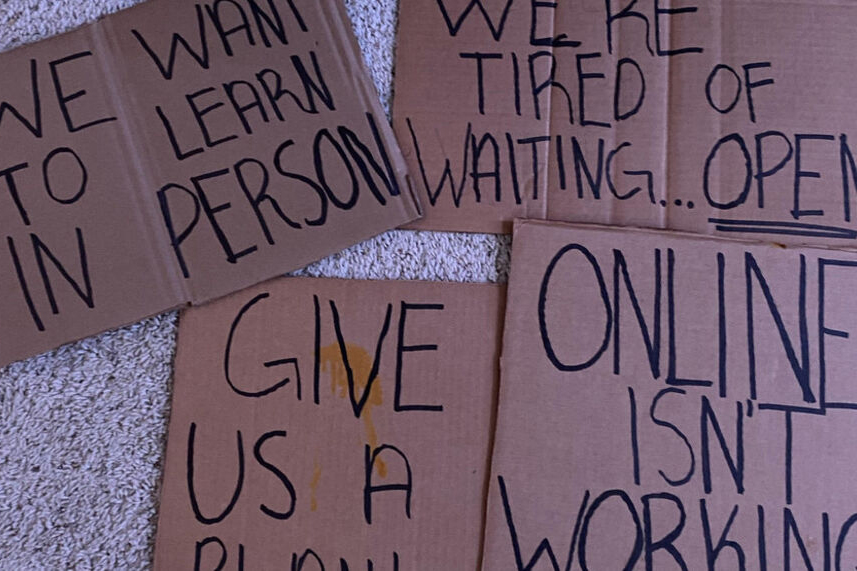 WE WANT
TO LEARN
IN PERSON
WE'RE
TIRED OF
WAITING... OPEN
GIVE
US A
ONLINE
ISN'T
WORKING